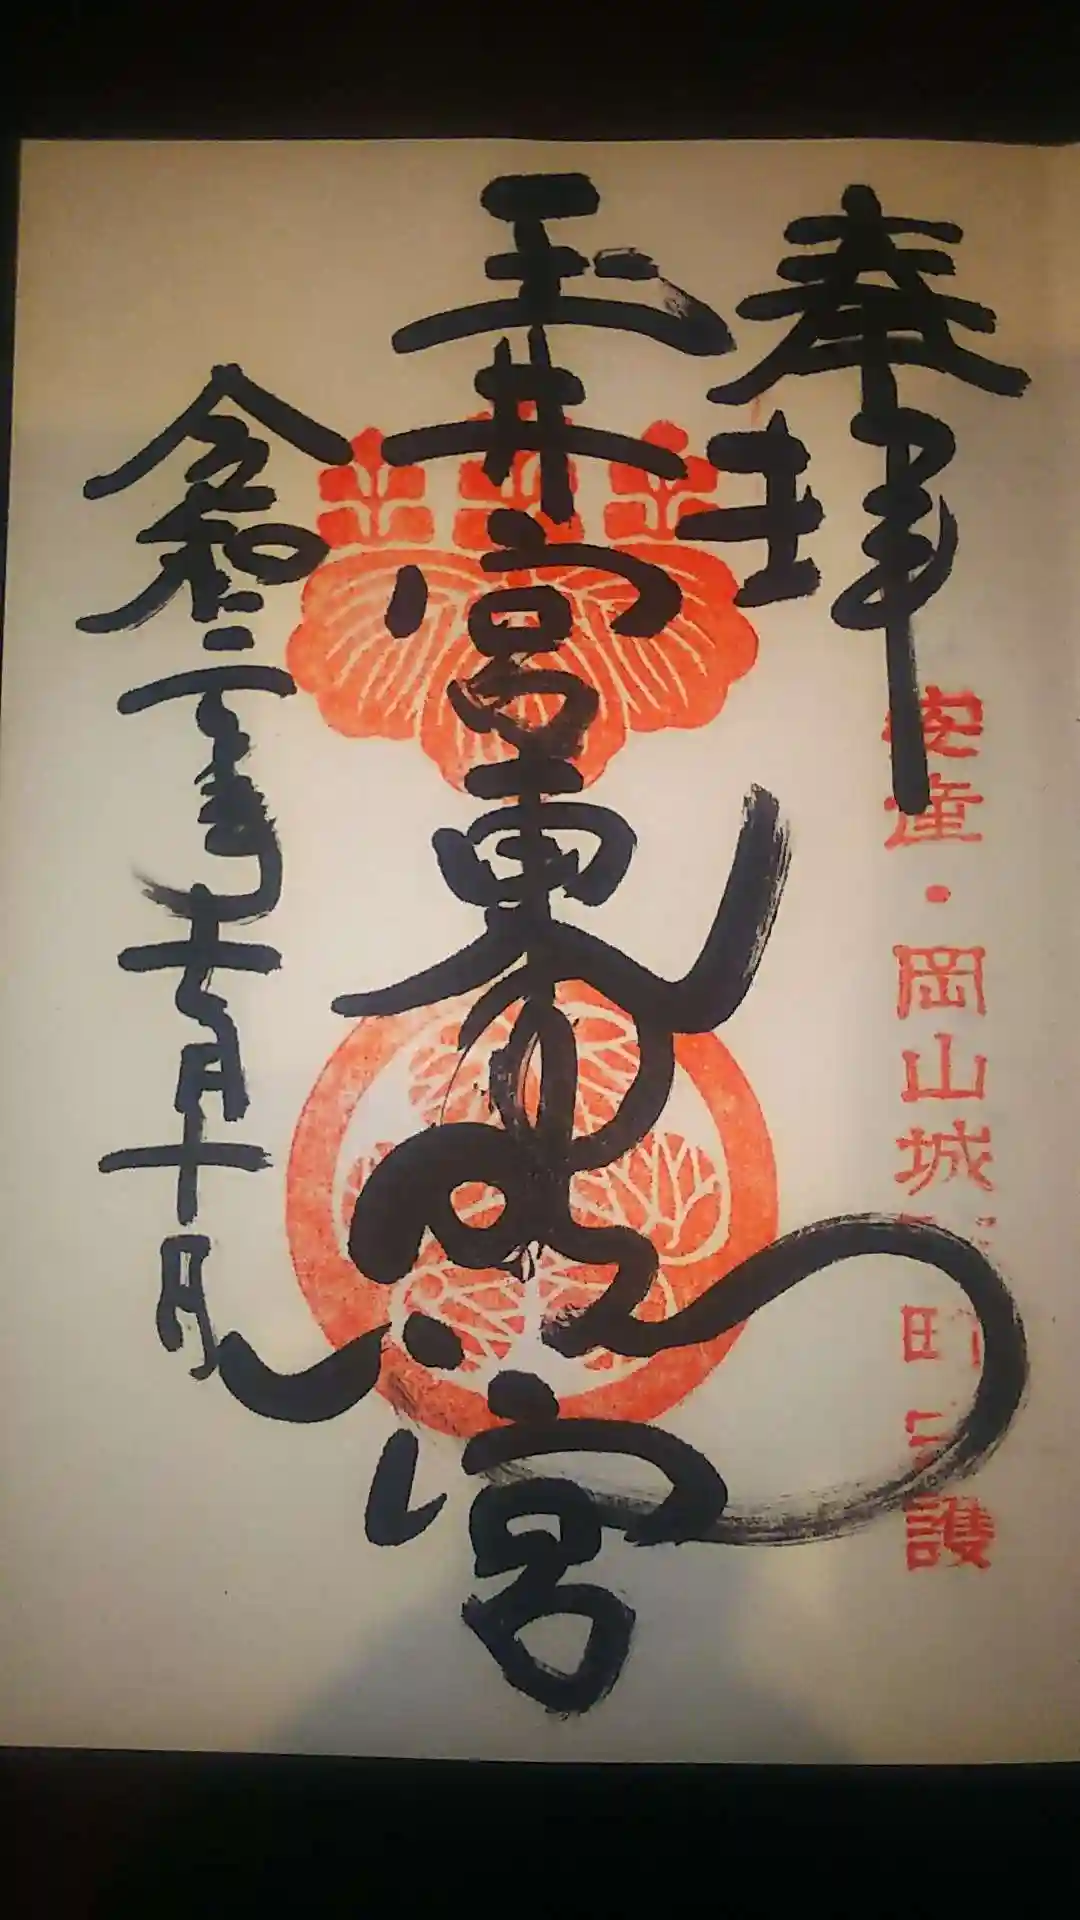 奉拝
安産・岡山城
町守護
玉井宮東照宮
令和二年
月十日